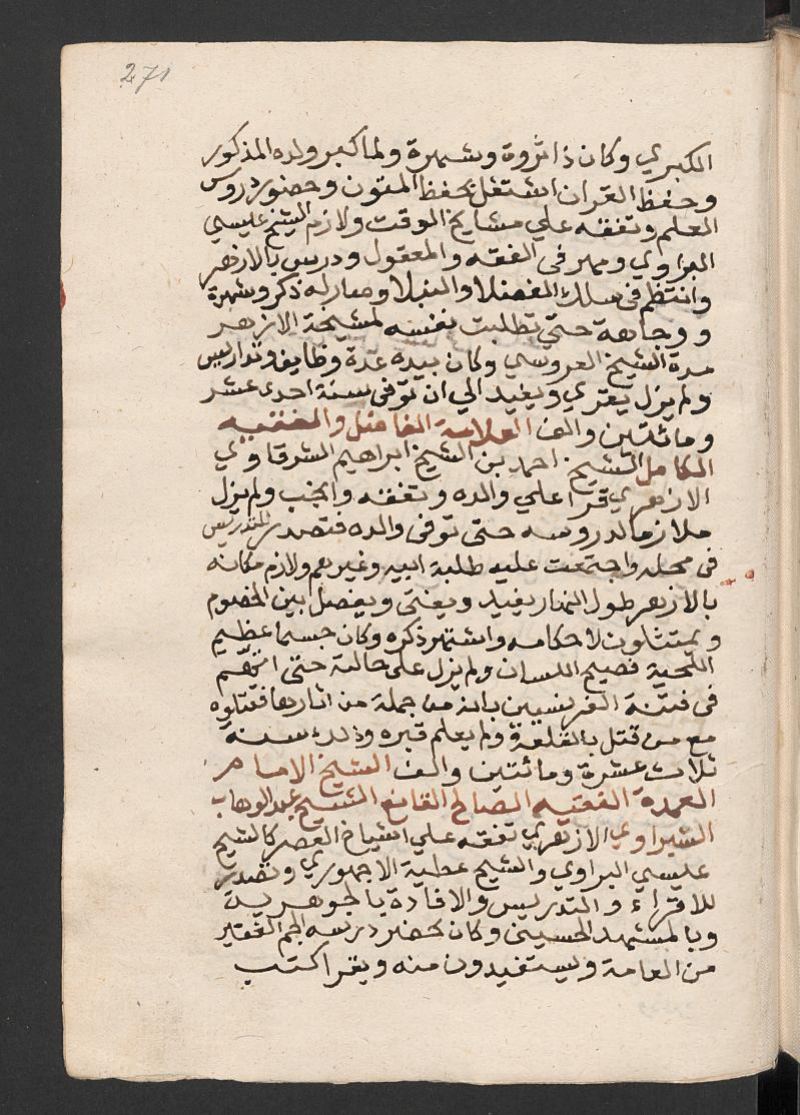 271
الكبري وكان ذا ثروة وشهرة ولما كبر ولده المذكور
وحفظ القران اشتغل بحفظ المتون وحضور دروس
المعلم وتفقه علي مشايخ الوقت ولازم الشيخ عليسي
البراوي ومهر في الفقه والمعقول ودرس بالازهر
وانتظم في سلك الفضلا والنبلا وصار له ذكر وشهرة
ووجاهة حتي تطلبت نفسه لمشيخة الازهر
مدة الشيخ العروسي وكان بيده عدة وظايف وتداريس
ولم يزل يقري ويفيد الي ان توفي سنة احدي عشر
ومائتين والف العلامة الفاضل والفقيه
الكامل الشيخ احمد بن الشيخ ابراهيم الشرقاوي
الازهري قرا علي والده وتفقه وانجب ولم يزل
ملازما لدروسه حتي توفي والده فتصدر للتدريس
في محله واجتمعت عليه طلبة ابيه وغيرهم ولازم مكانه
بالازهر طول النهار يفيد ويفتي ويفصل بين الخصوم
ويمتثلون لاحكامه واشتهر ذكره وكان جسما عظيم
اللحية فصيح اللسان ولم يزل علي حالته حتي اتهم
في فتنة الفرنسيين بانه من جملة من اثارها فقتلوه
مع من قتل بالقلعة ولم يعلم قبره وذلك سنة
ثلاث عشرة ومائتين والف الشيخ الامام
العمدة الفقيه الصالح القانع الشيخ عبد الوهاب
الشبراوي الازهري تفقه علي اشياخ العصر كالشيخ
عليسي البراوي والشيخ عطية الاجهوري وتصدر
للاقراء والتدريس والافادة بالجوهرية
وبالمشهد الحسيني وكان يحضر درسه الجم الغفير
من العامة ويستفيدون منه ويقرا كتب